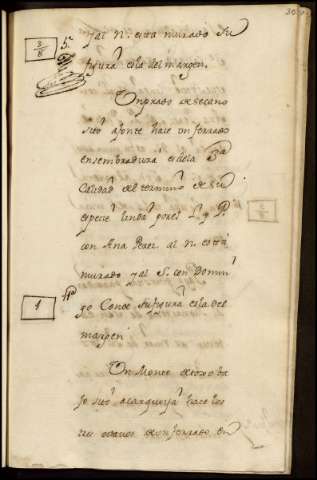 3/8
5.
y al N. esta murado su
figura es la del margen.
Un prado de secano
sito a fonte hace un ferrado
en sembradura es de la 3ª
Calidad del termino de su
especie linda por el L. y P.
con Ana Perez al N. esta
murado y al S. con Domin
1
go Conde su figura es la del
margen
Un Monte de toxo ba
jo sito hace los
tres octavos de un ferrado en